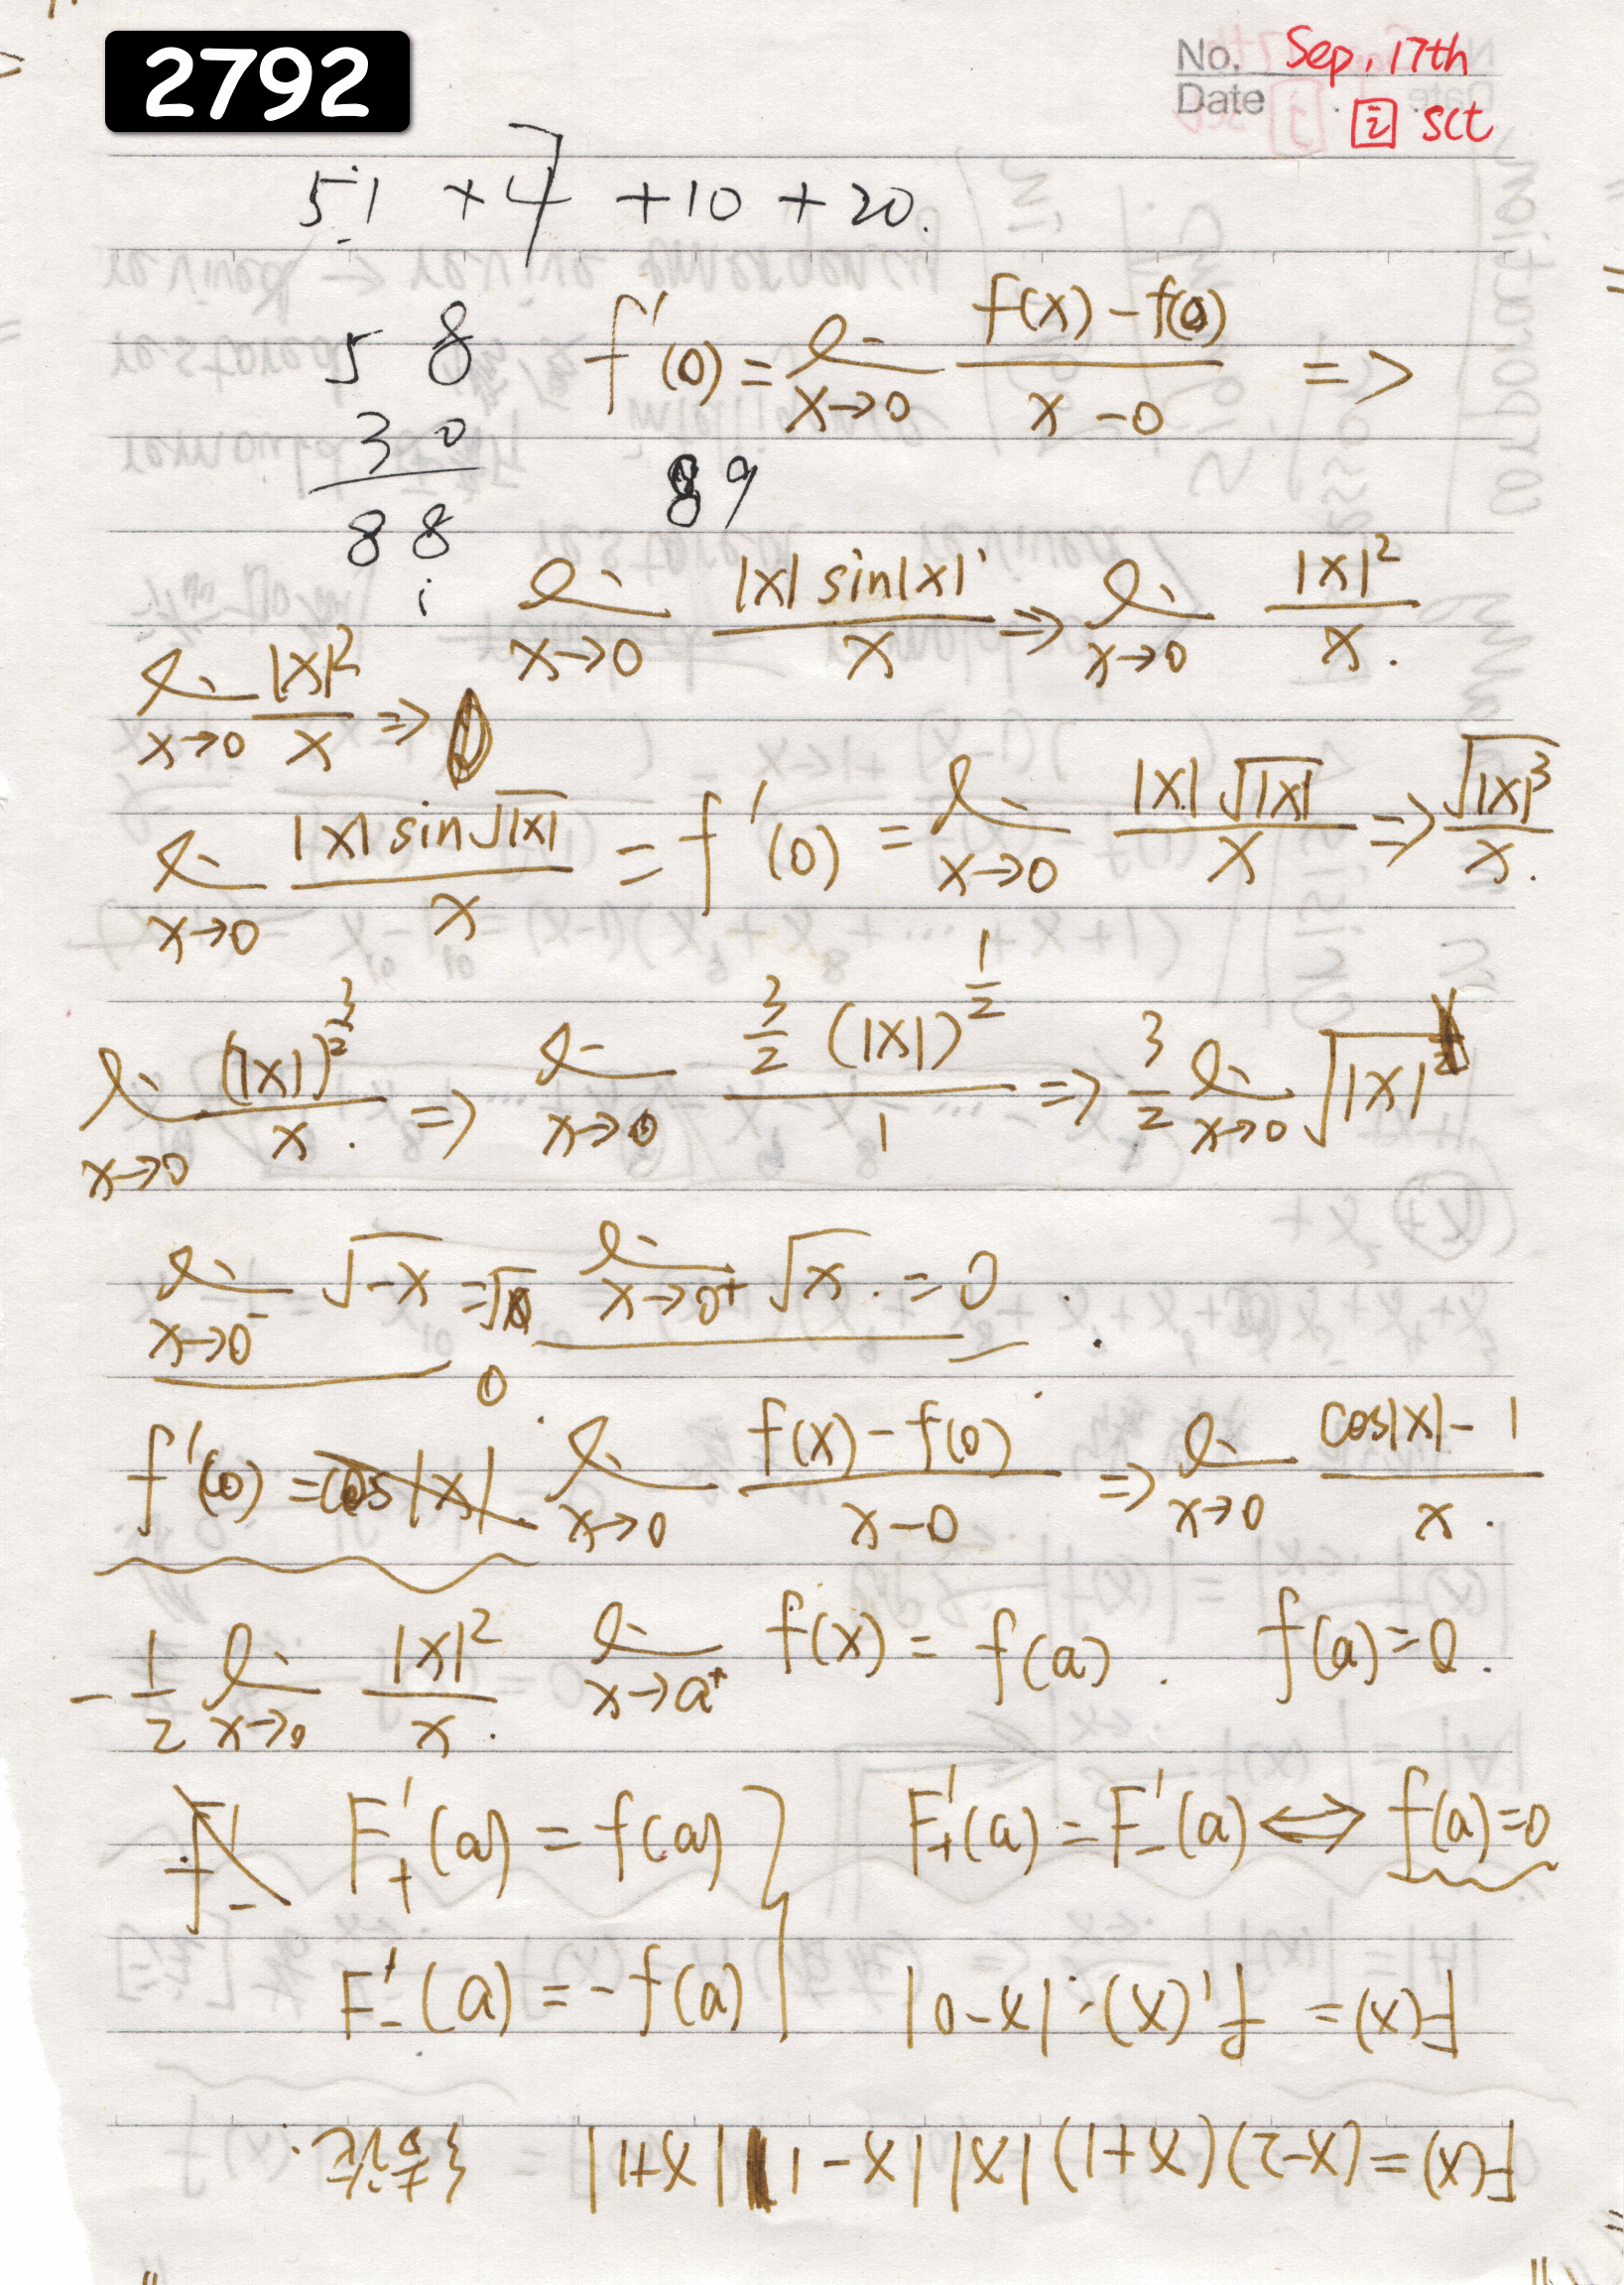 2792
No. Sep. 17th
Date 2 sct
51 +4 +10 +20.
58 f'(0) = lim x→0 (f(x) - f(0))/(x - 0) =>
30
88 89
lim x→0 |x| sin|x| / x => lim x→0 |x|² / x.
lim x→0 |x|² / x => 0
lim x→0 |x| sin√|x| / x = f'(0) = lim x→0 |x| √|x| / x => √|x|³ / x.
lim x→0 (|x|)^(3/2) / x. => lim x→0 3/2 (|x|)^(1/2) / 1 => 3/2 lim x→0 √|x|
lim x→0⁻ √-x = √0 lim x→0⁺ √x. = 0
0
f'(0) = cos|x| lim x→0 (f(x) - f(0))/(x-0) => lim x→0 (cos|x| - 1)/x.
-1/2 lim x→0 |x|²/x. lim x→a⁺ f(x) = f(a). f(a)=0.
F'₊(a) = f(a) F'₊(a) = F'₋(a) <=> f(a)=0
F'₋(a) = -f(a)
F(x) = f'(x)·|x-0|
f(x)=(x-2)(x+1)|x||x-1||x+1|